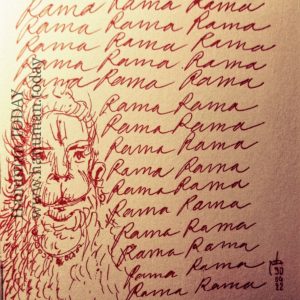 Rama Rama Rama
Rama Rama Rama
Rama Rama Rama
Rama Rama Rama
Rama Rama
Rama Rama
Rama Rama
Rama Rama
Rama Rama
Rama Rama
Rama Rama
Rama Rama
Rama Rama
Hanuman TODAY
www.hanuman.today
30
04
22